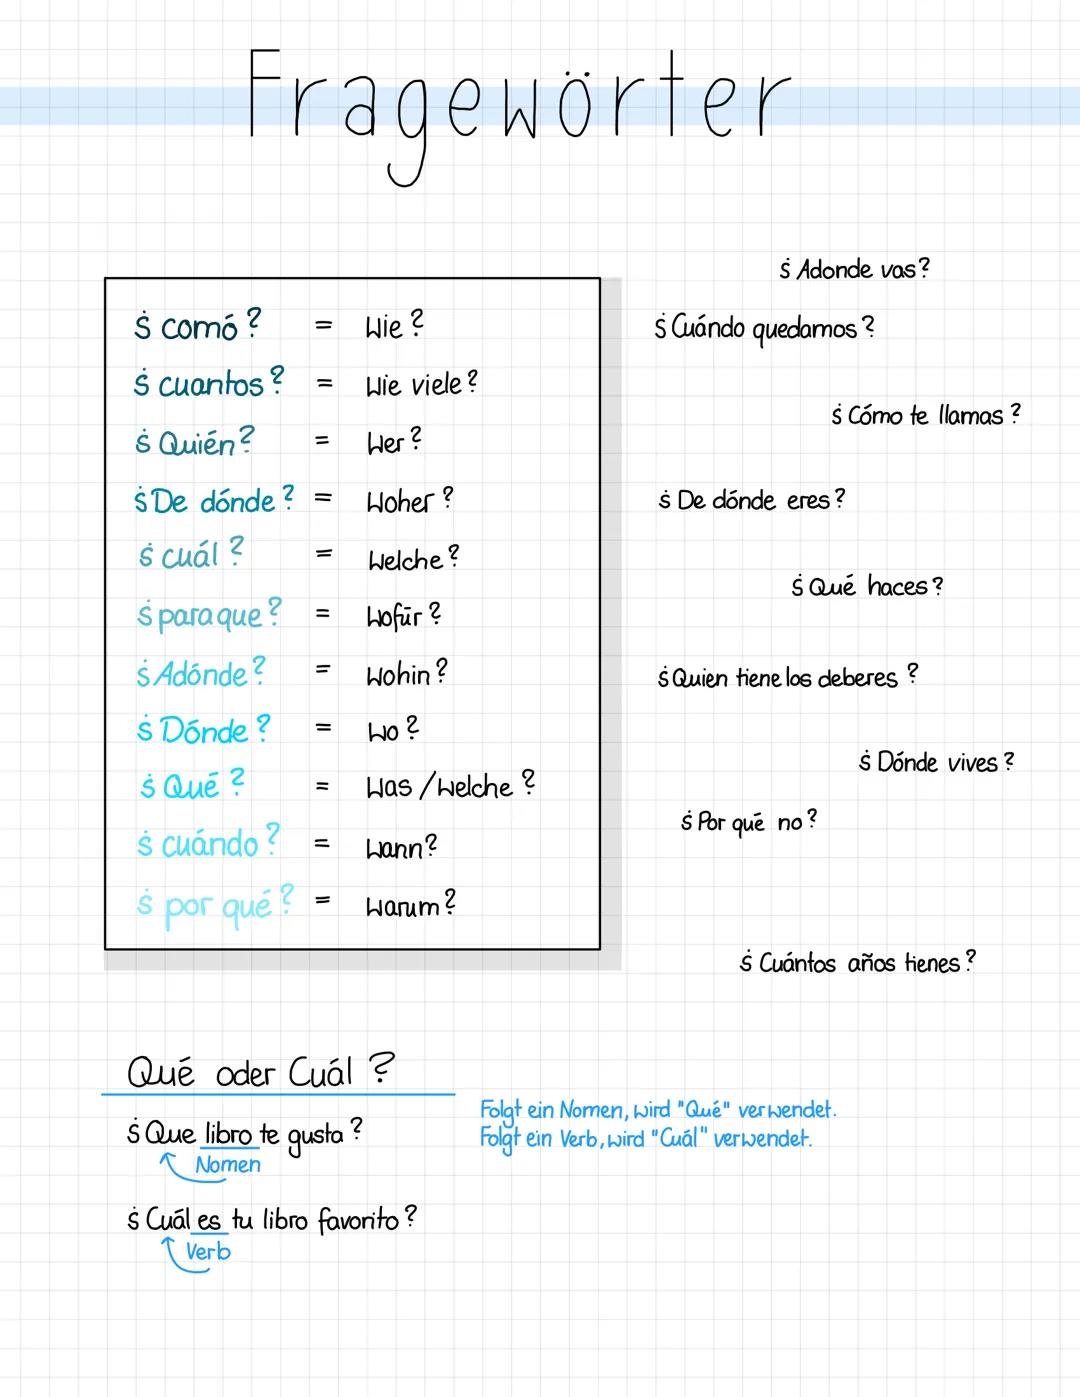 Fragewörter
¿ comó? = Wie?
¿ cuantos? = Wie viele?
¿ Quién? = Wer?
¿ De dónde? = Woher?
¿ cuál? = Welche?
¿ para que? = Wofür?
¿ Adónde? = Wohin?
¿ Dónde? = Wo?
¿ Qué? = Was/welche?
¿ cuándo? = Wann?
¿ por qué? = Warum?
¿ Adonde vas?
¿ Cuándo quedamos?
¿ Cómo te llamas?
¿ De dónde eres?
¿ Qué haces?
¿ Quien tiene los deberes?
¿ Dónde vives?
¿ Por qué no?
¿ Cuántos años tienes?
Qué oder Cuál?
¿ Que libro te gusta?
Nomen
¿ Cuál es tu libro favorito?
Verb
Folgt ein Nomen, wird "Qué" verwendet.
Folgt ein Verb, wird "Cuál" verwendet.